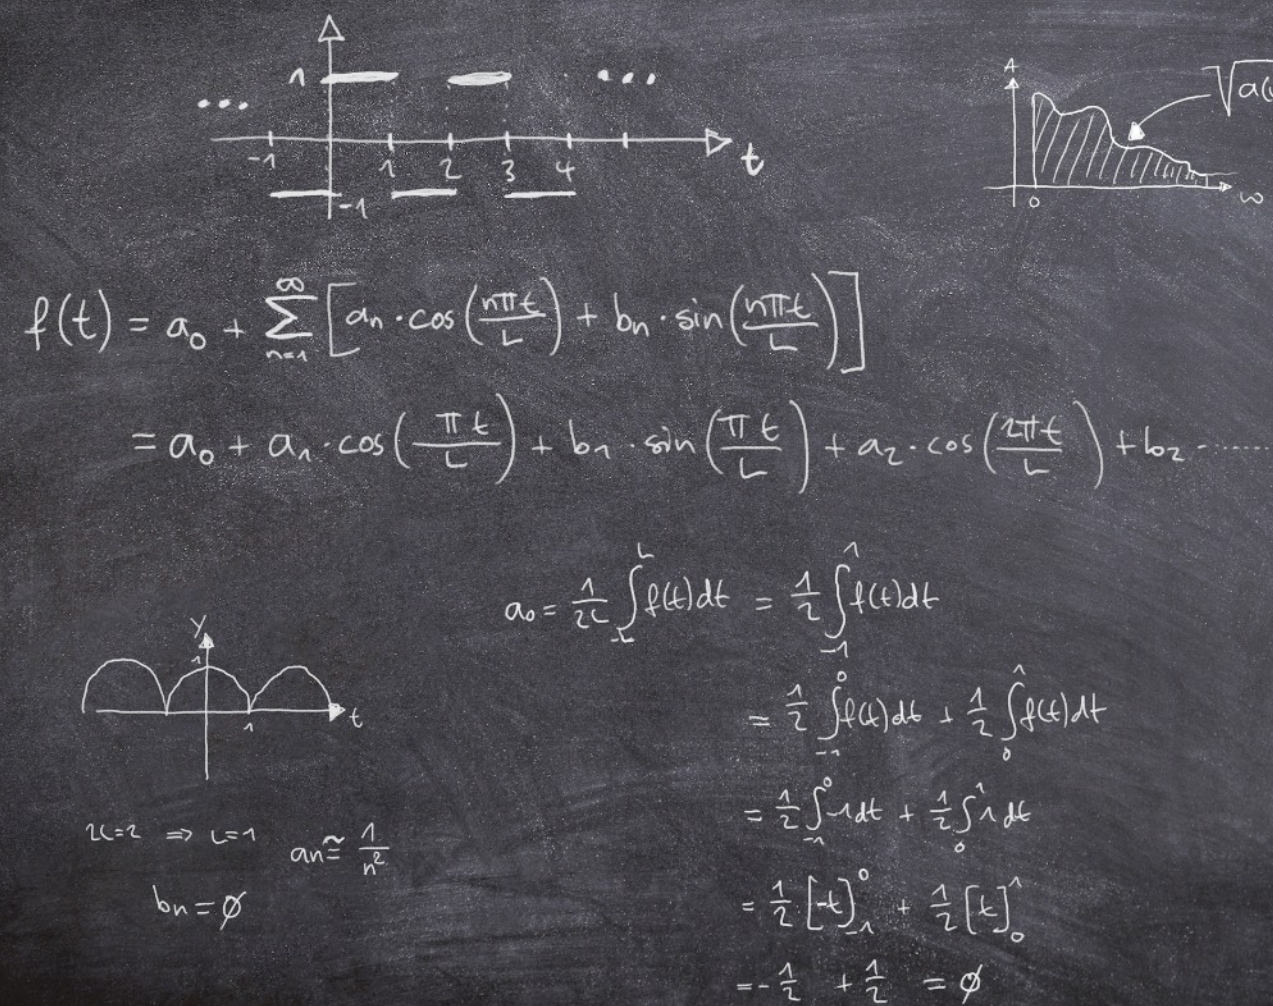 1
... ...
-1 1 2 3 4 t
-1
A
√a(
0 ω
f(t) = a₀ + ∑ₙ₌₁^∞ [aₙ · cos(nπt/L) + bₙ · sin(nπt/L)]
= a₀ + a₁ · cos(πt/L) + b₁ · sin(πt/L) + a₂ · cos(2πt/L) + b₂ · ......
a₀ = 1/2L ∫₋L^L f(t)dt = 1/2 ∫₋₁^1 f(t)dt
= 1/2 ∫₋₁^0 f(t)dt + 1/2 ∫₀^1 f(t)dt
= 1/2 ∫₋₁^0 -1dt + 1/2 ∫₀^1 1dt
= 1/2 [-t]₋₁^0 + 1/2 [t]₀^1
= -1/2 + 1/2 = ∅
y
1
1 t
2L=2 ⇒ L=1
aₙ ≅ 1/n²
bₙ = ∅